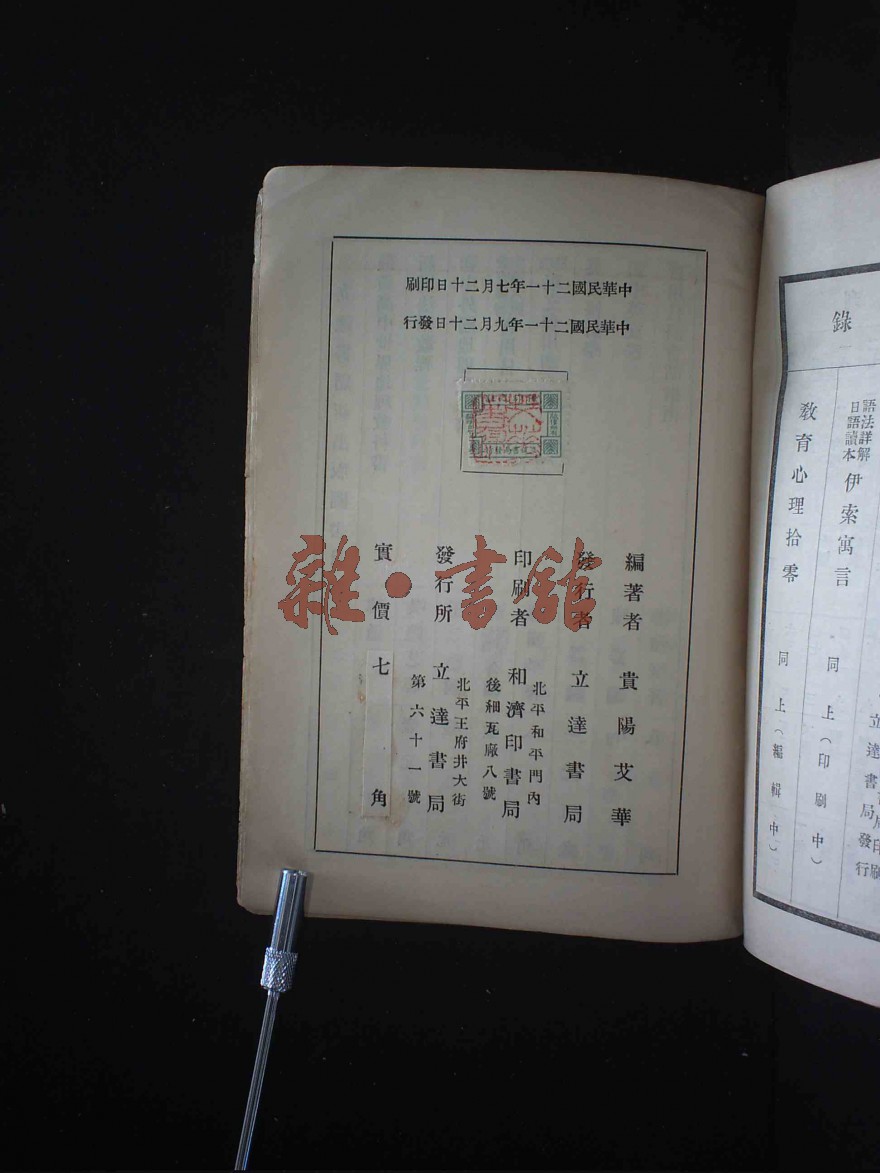 中華民國二十一年七月二十日印刷
中華民國二十一年九月二十日發行
編著者 貴陽艾華
發行者 立達書局
印刷者 和濟印書局
北平和平門內
後細瓦廠八號
發行所 立達書局
北平王府井大街
第六十一號
實價七角
雜·書館
錄
立達書局印刷發行
語法詳解
日語讀本
伊索寓言 同上(印刷中)
教育心理拾零 同上(編輯中)